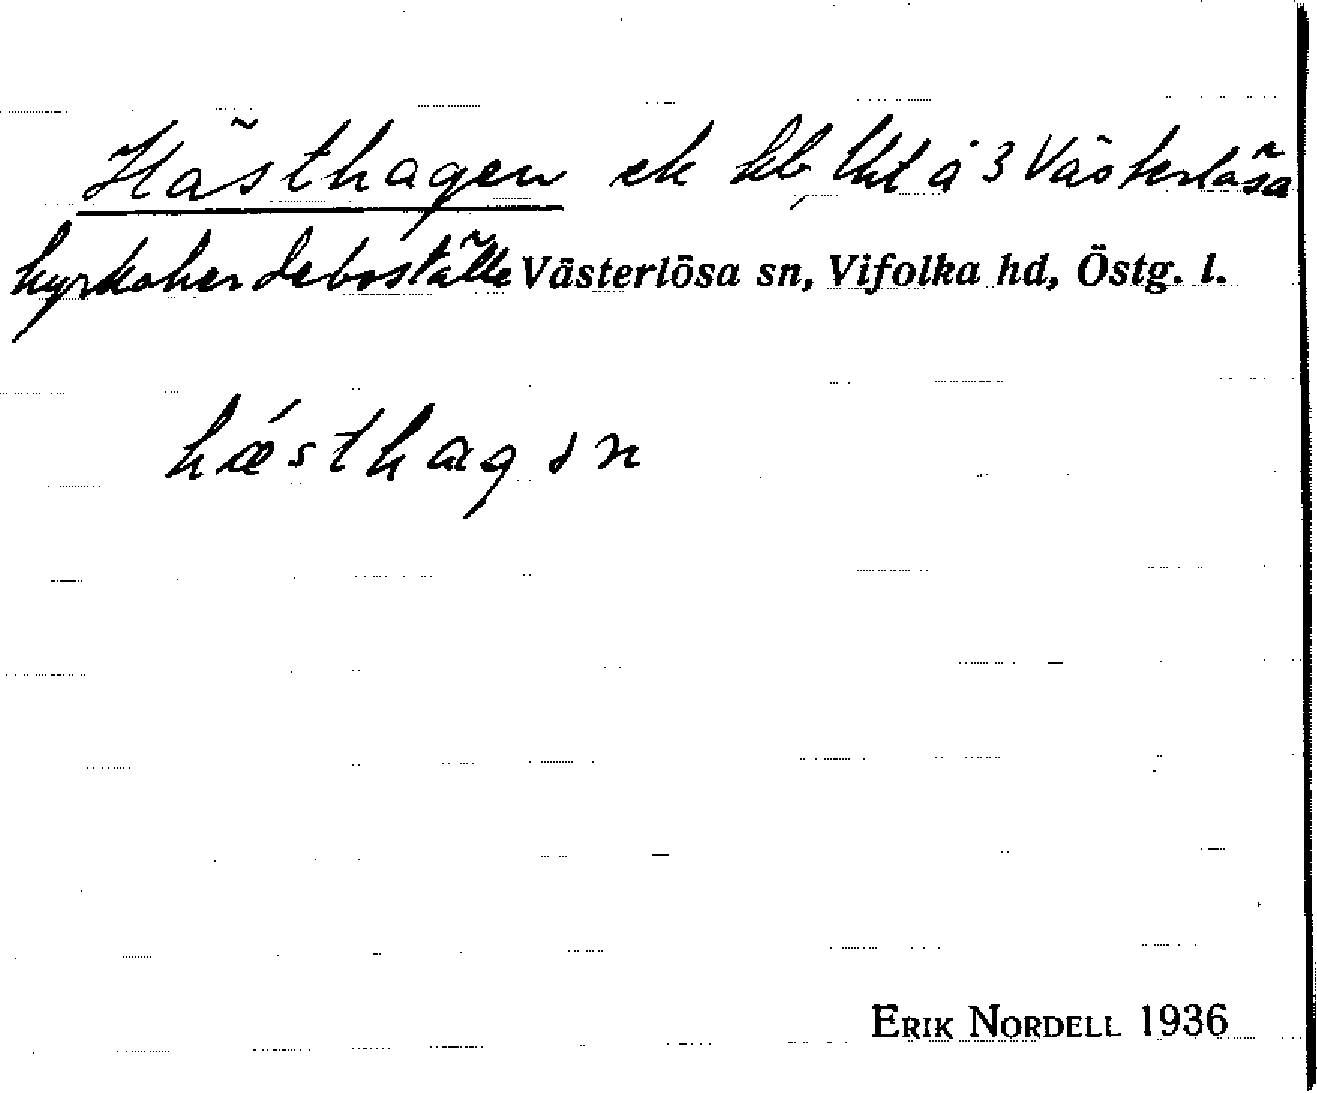 Hästhagen ek kb lht å 3 Västerlösa
kyrkoherdeboställe Västerlösa sn, Vifolka hd, Östg. l.
hǽsthagən
ERIK NORDELL 1936